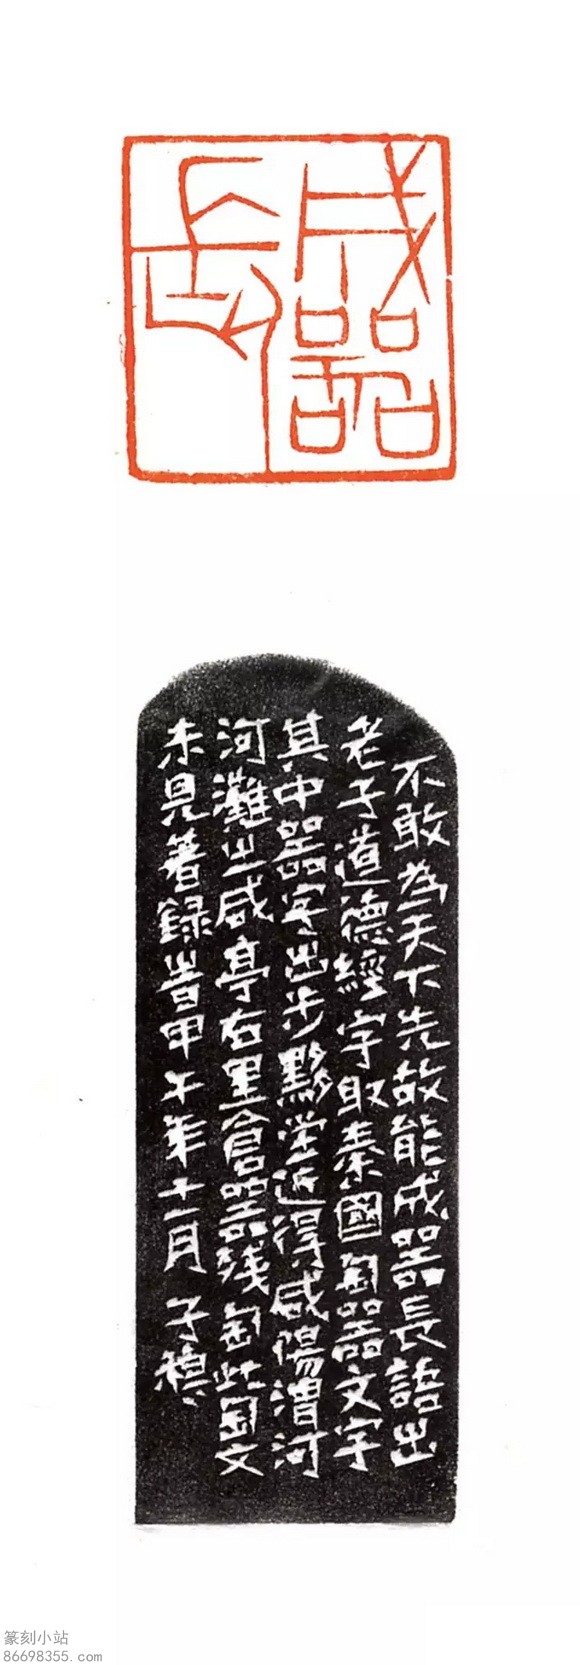 成器長
不敢為天下先故能成器長語出
老子道德經字取秦國匋器文字
其中器字出步黟堂近得咸陽渭河
河灘出咸亭右里倉器殘匋此匋文
未見著錄旹甲午年十一月子穆
篆刻小站
86698355.com